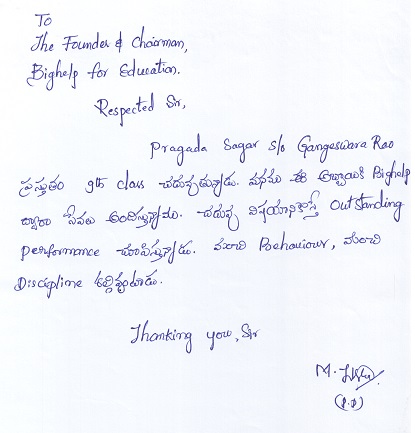 To
The Founder & Chairman,
Bighelp for Education.
Respected Sir,
Pragada Sagar s/o Gangeswara Rao
ప్రస్తుతం 9th class చదువుతున్నాడు. మనము ఈ అబ్బాయికి Bighelp
ద్వారా సేవలు అందిస్తున్నాము. చదువు విషయానికొస్తే Outstanding
performance చూపిస్తున్నాడు. మంచి Behaviour, మంచి
Discipline కల్గివుంటాడు.
Thanking you, Sir
M.